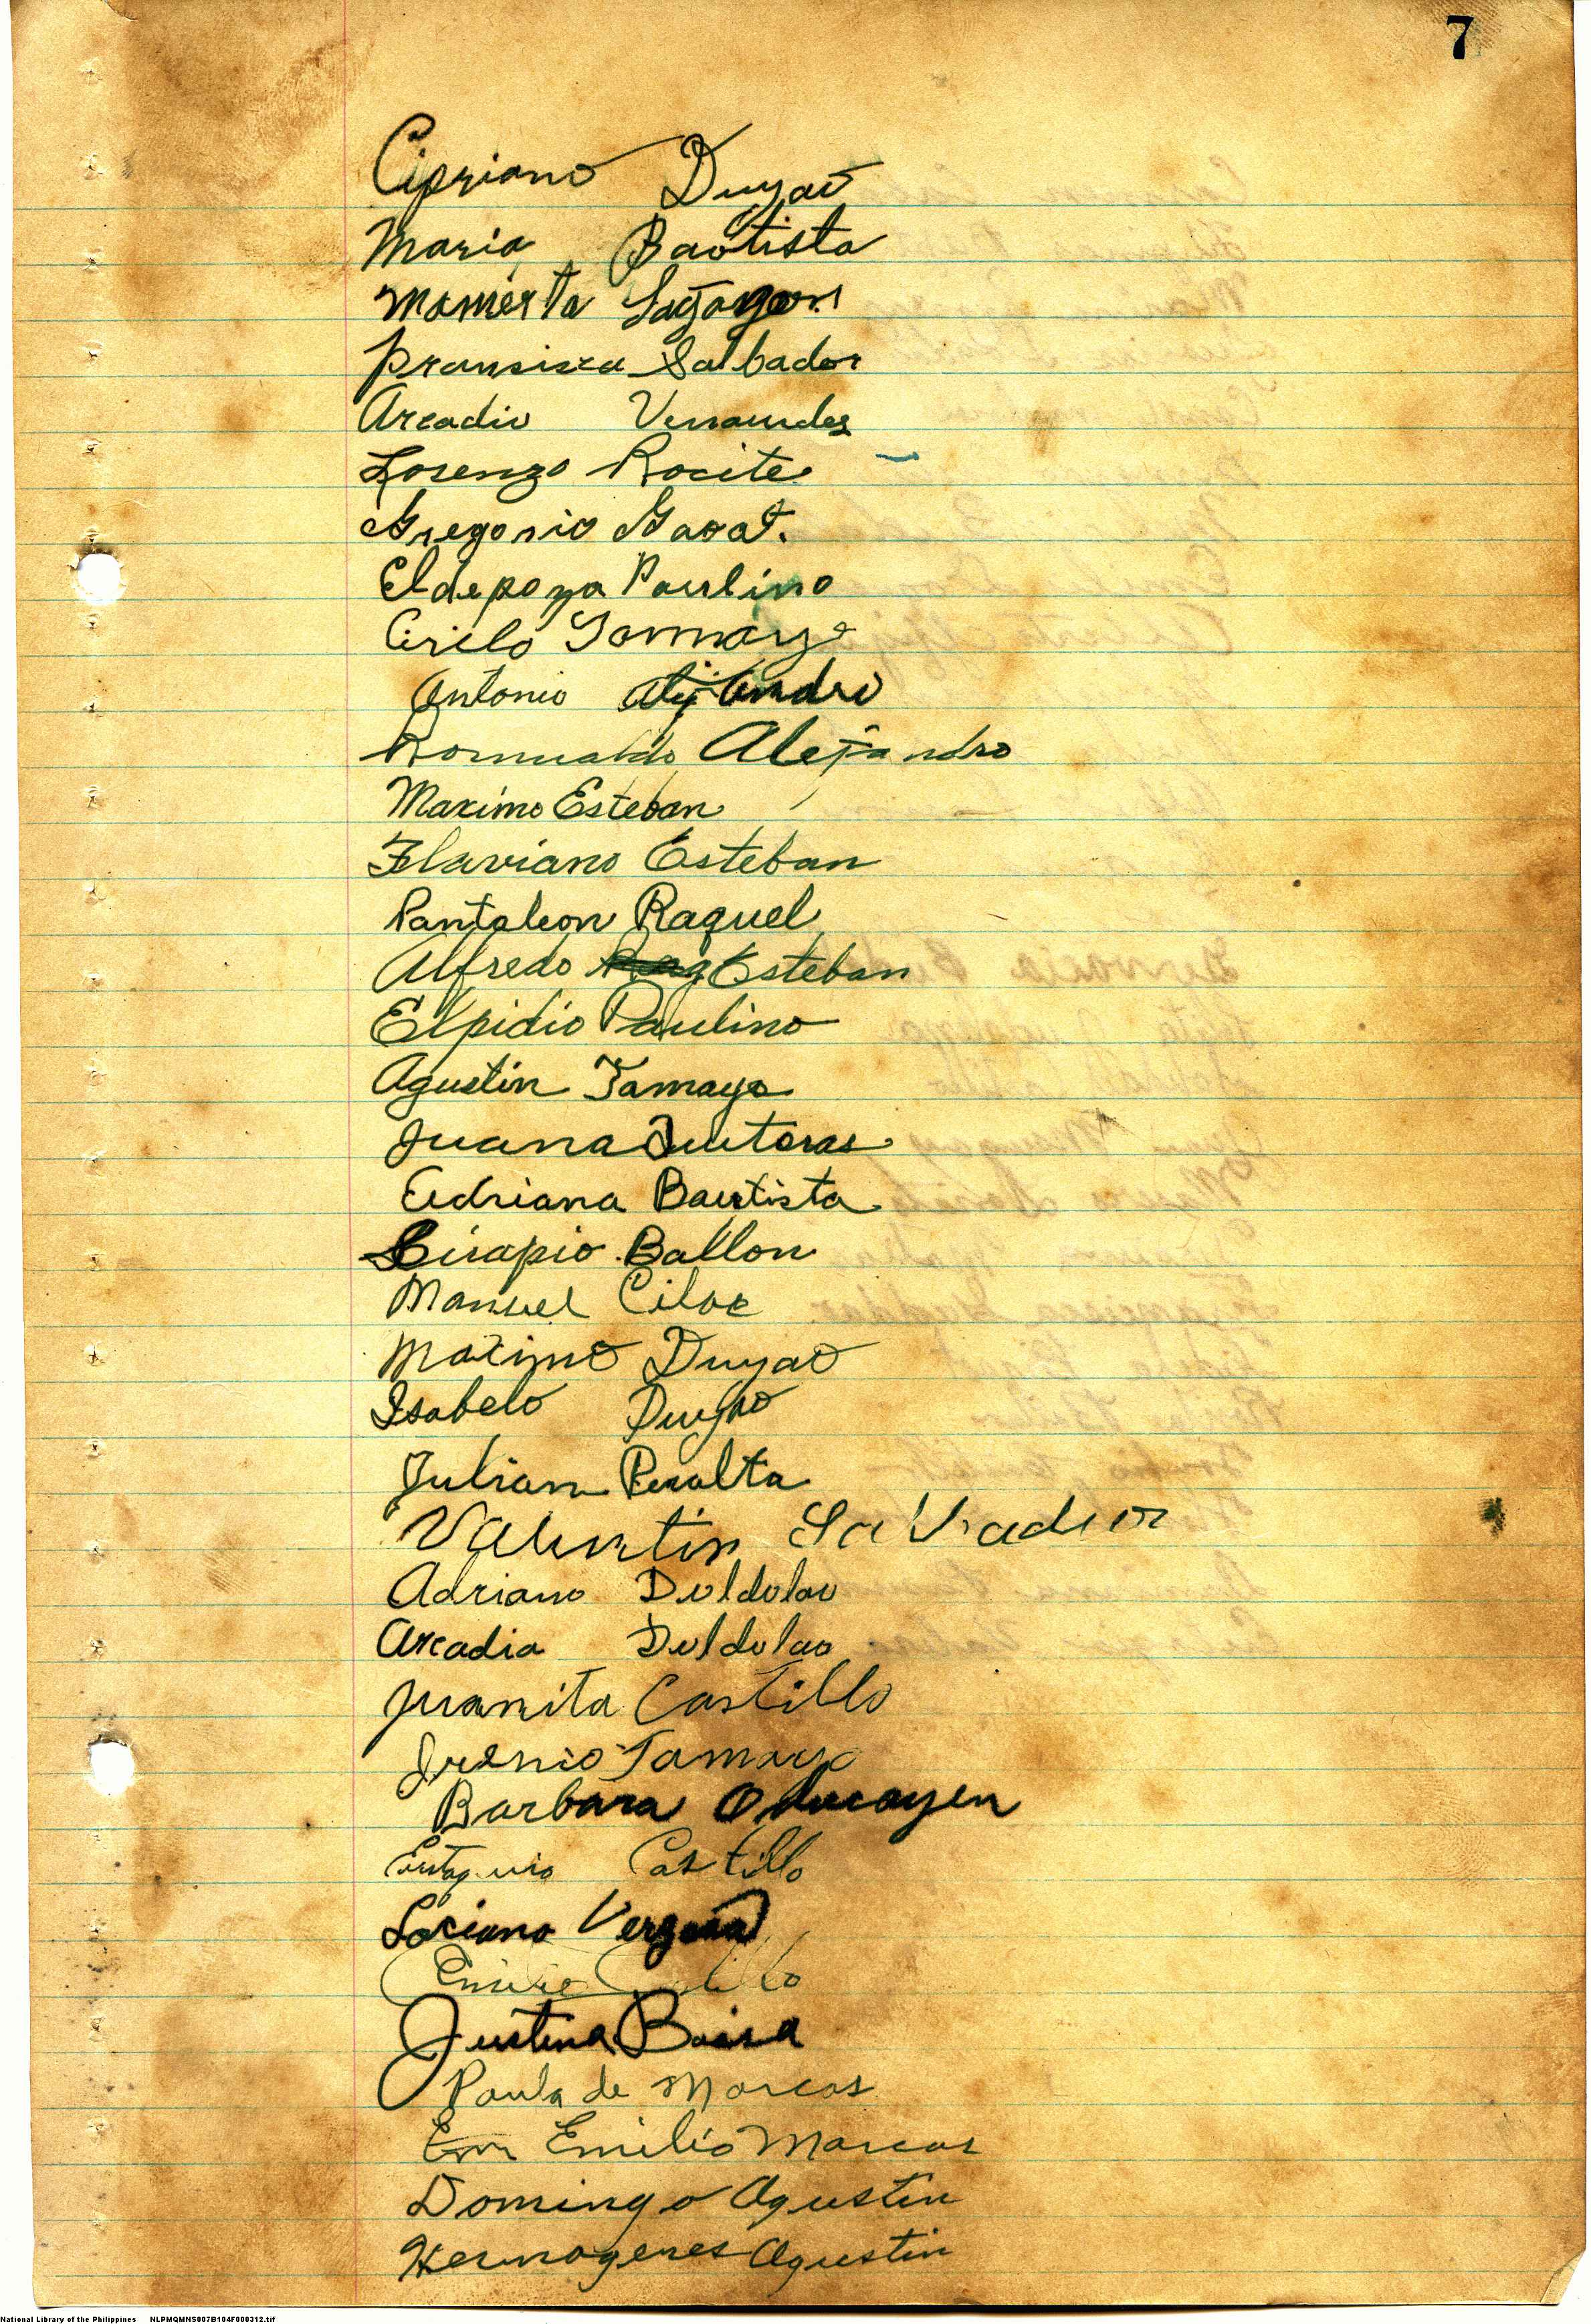 7
Cipriano Duyao
Maria Baotista
Mamerta Lagazon
Pransisca Salbador
Arcadio Vernandes
Lorenzo Rocite
Gregorio Gaoat.
Eldepoza Paulino
Cirilo Tammayo
Antonio Alijandro
Romualdo Alejandro
Maximo Esteban
Flaviano Esteban
Pantaleon Raquel
Alfredo Esteban
Elpidio Paulino
Agustin Tamayo
Juana
Edriana Bautista
Ballon
Manuel
Maximo Duyao
Isabelo Duyao
Julian Peralta
Valentin Salvador
Adriano Duldulao
Arcadia Duldulao
Juanita Castillo
Irenio Tamayo
Barbara Oducayen
Castillo
Luciano Vergara
Justina
Paula de Marcos
Em Emilio Marcos
Domingo Agustin
Hermogenes Agustin
National Library of the Philippines NLPMQMNS007B104F000312.tif